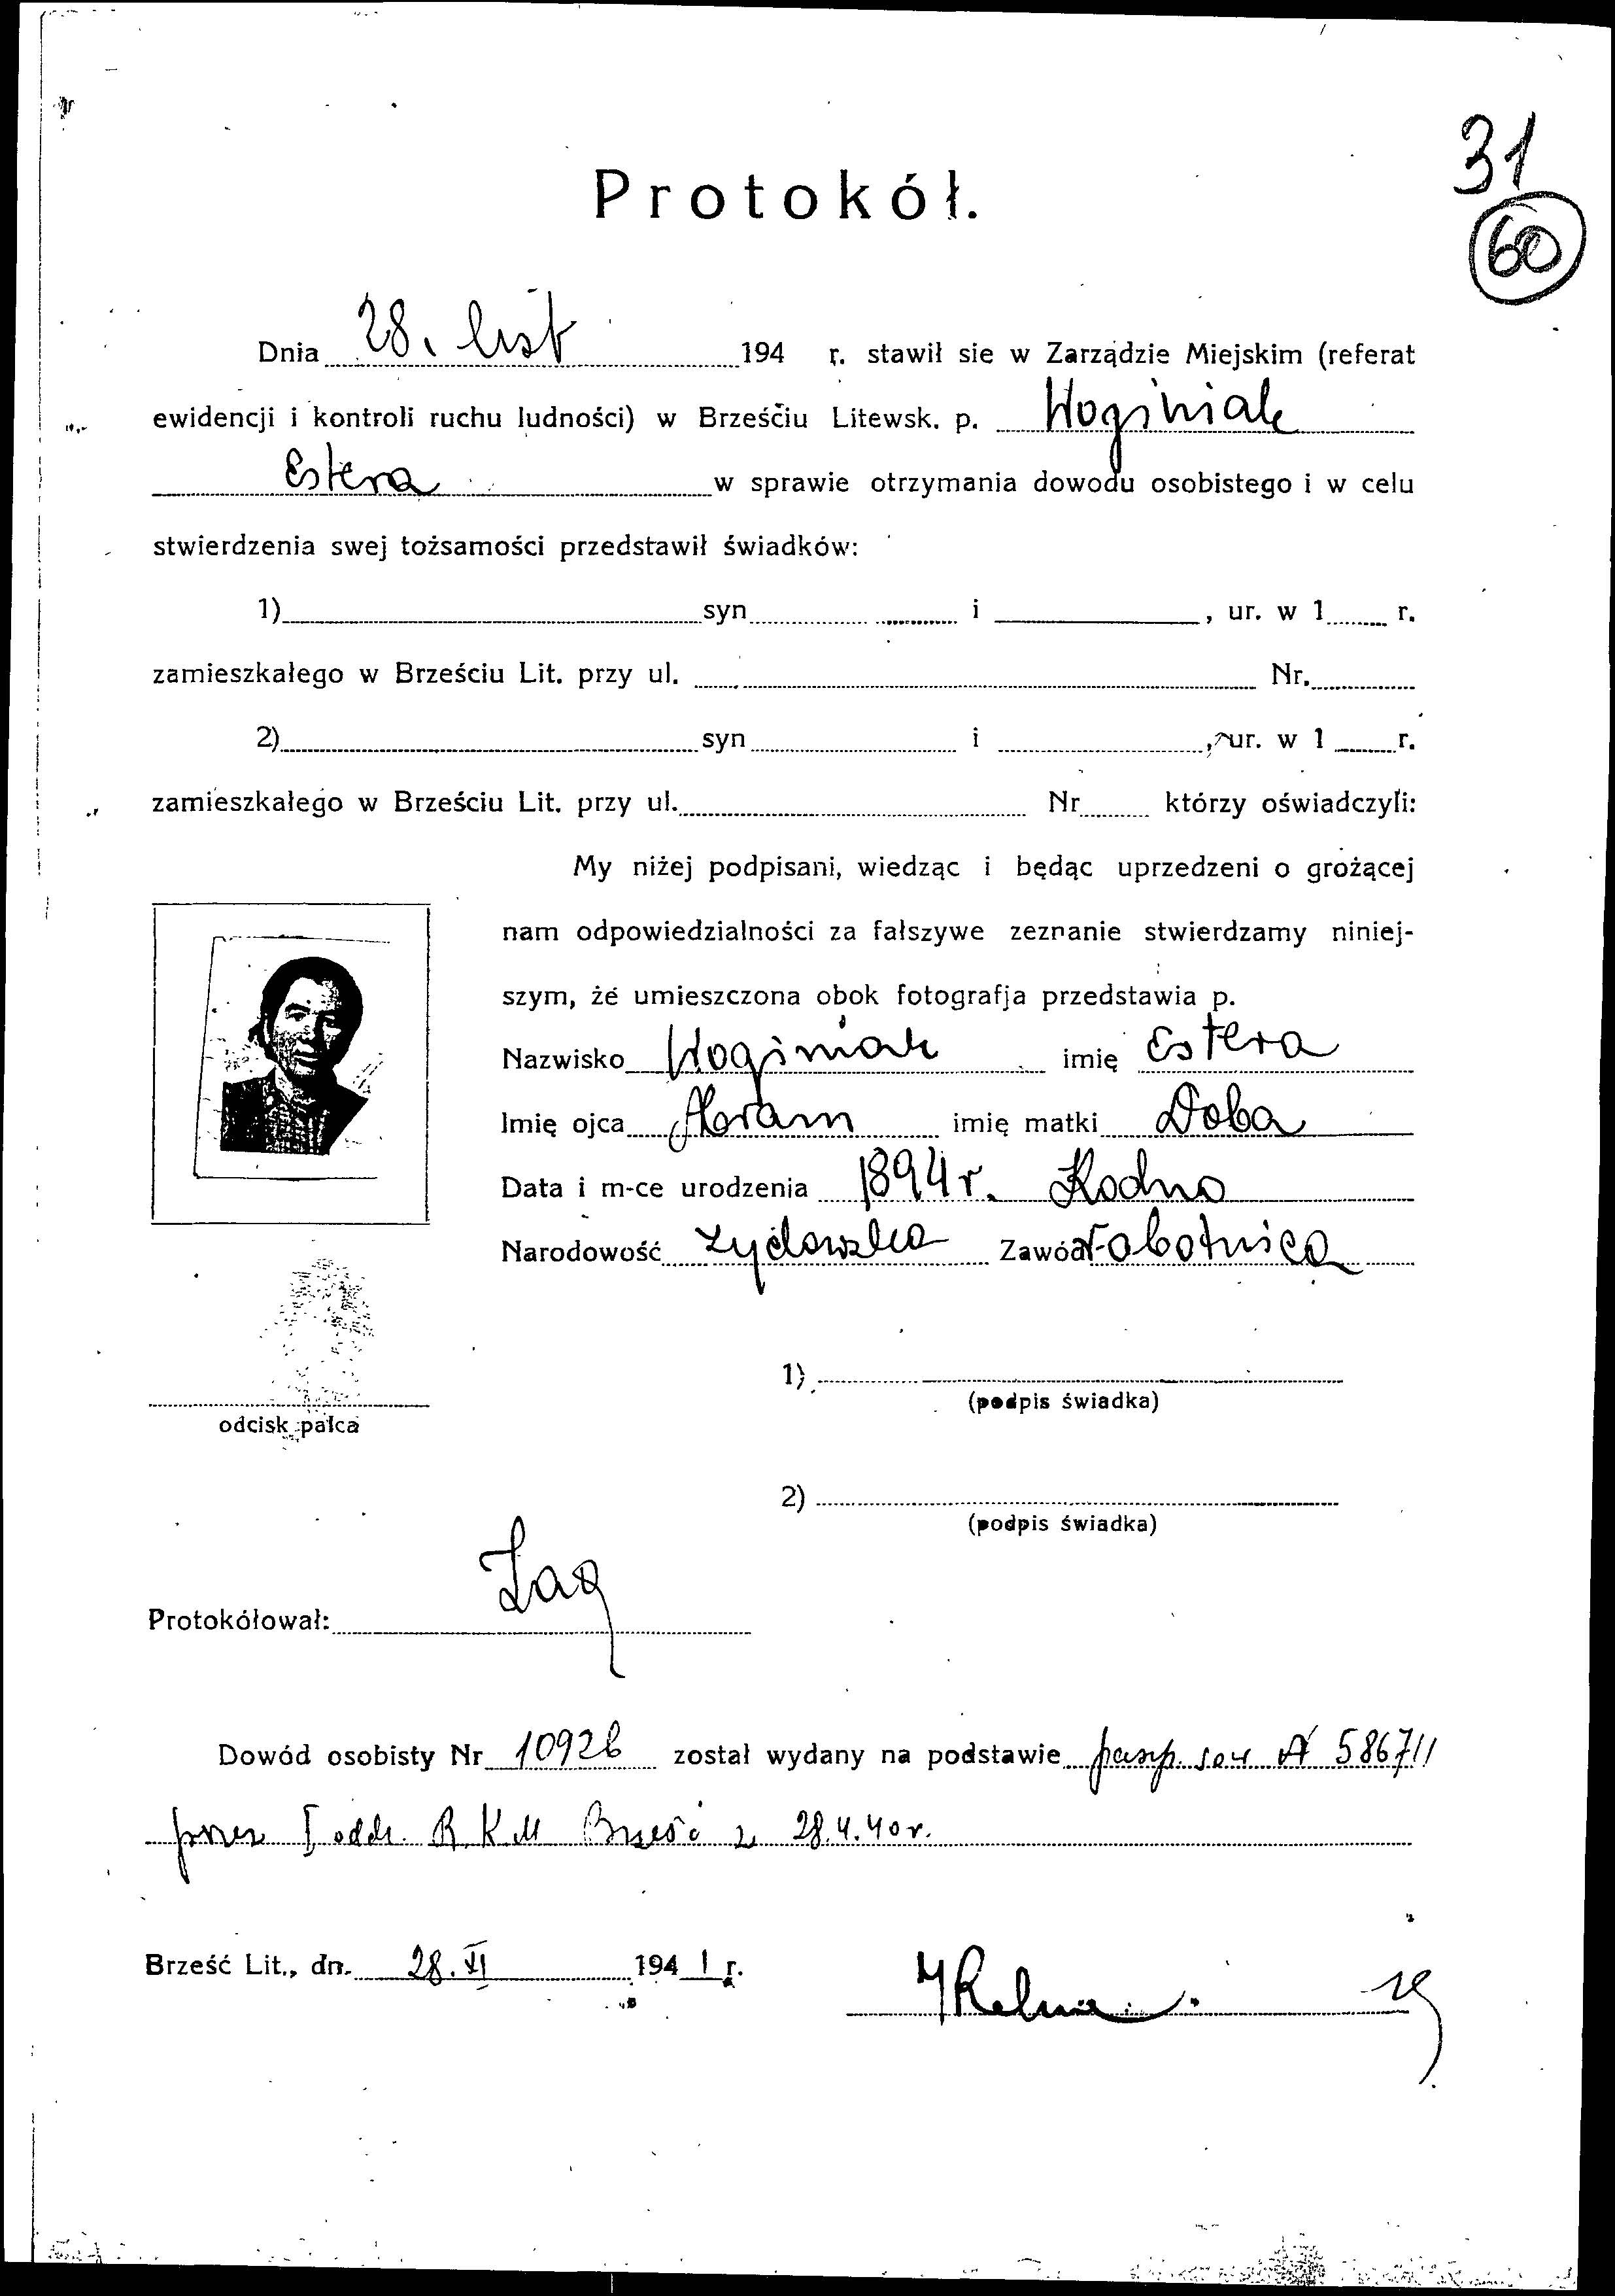 31
60
Protokół.
Dnia 28. list 194 r. stawił sie w Zarządzie Miejskim (referat
ewidencji i kontroli ruchu ludności) w Brześciu Litewsk. p. Woginiak
Estera w sprawie otrzymania dowodu osobistego i w celu
stwierdzenia swej tożsamości przedstawił świadków:
1) syn i , ur. w 1 r.
zamieszkałego w Brześciu Lit. przy ul. Nr.
2) syn i , ur. w 1 r.
zamieszkałego w Brześciu Lit. przy ul. Nr którzy oświadczyli:
My niżej podpisani, wiedząc i będąc uprzedzeni o grożącej
nam odpowiedzialności za fałszywe zeznanie stwierdzamy niniej-
szym, że umieszczona obok fotografja przedstawia p.
Nazwisko Woginiak imię Estera
Imię ojca Abram imię matki Doba
Data i m-ce urodzenia 1894 r. Kodno
Narodowość żydowska Zawód robotnica
1)
(podpis świadka)
odcisk palca
2)
(podpis świadka)
Protokółował:
Dowód osobisty Nr 10926 został wydany na podstawie pasp. sow A 586711
przez I oddz. R.K.M Brześć z 28.4.40 r.
Brześć Lit., dn. 28.XI 1941 r.